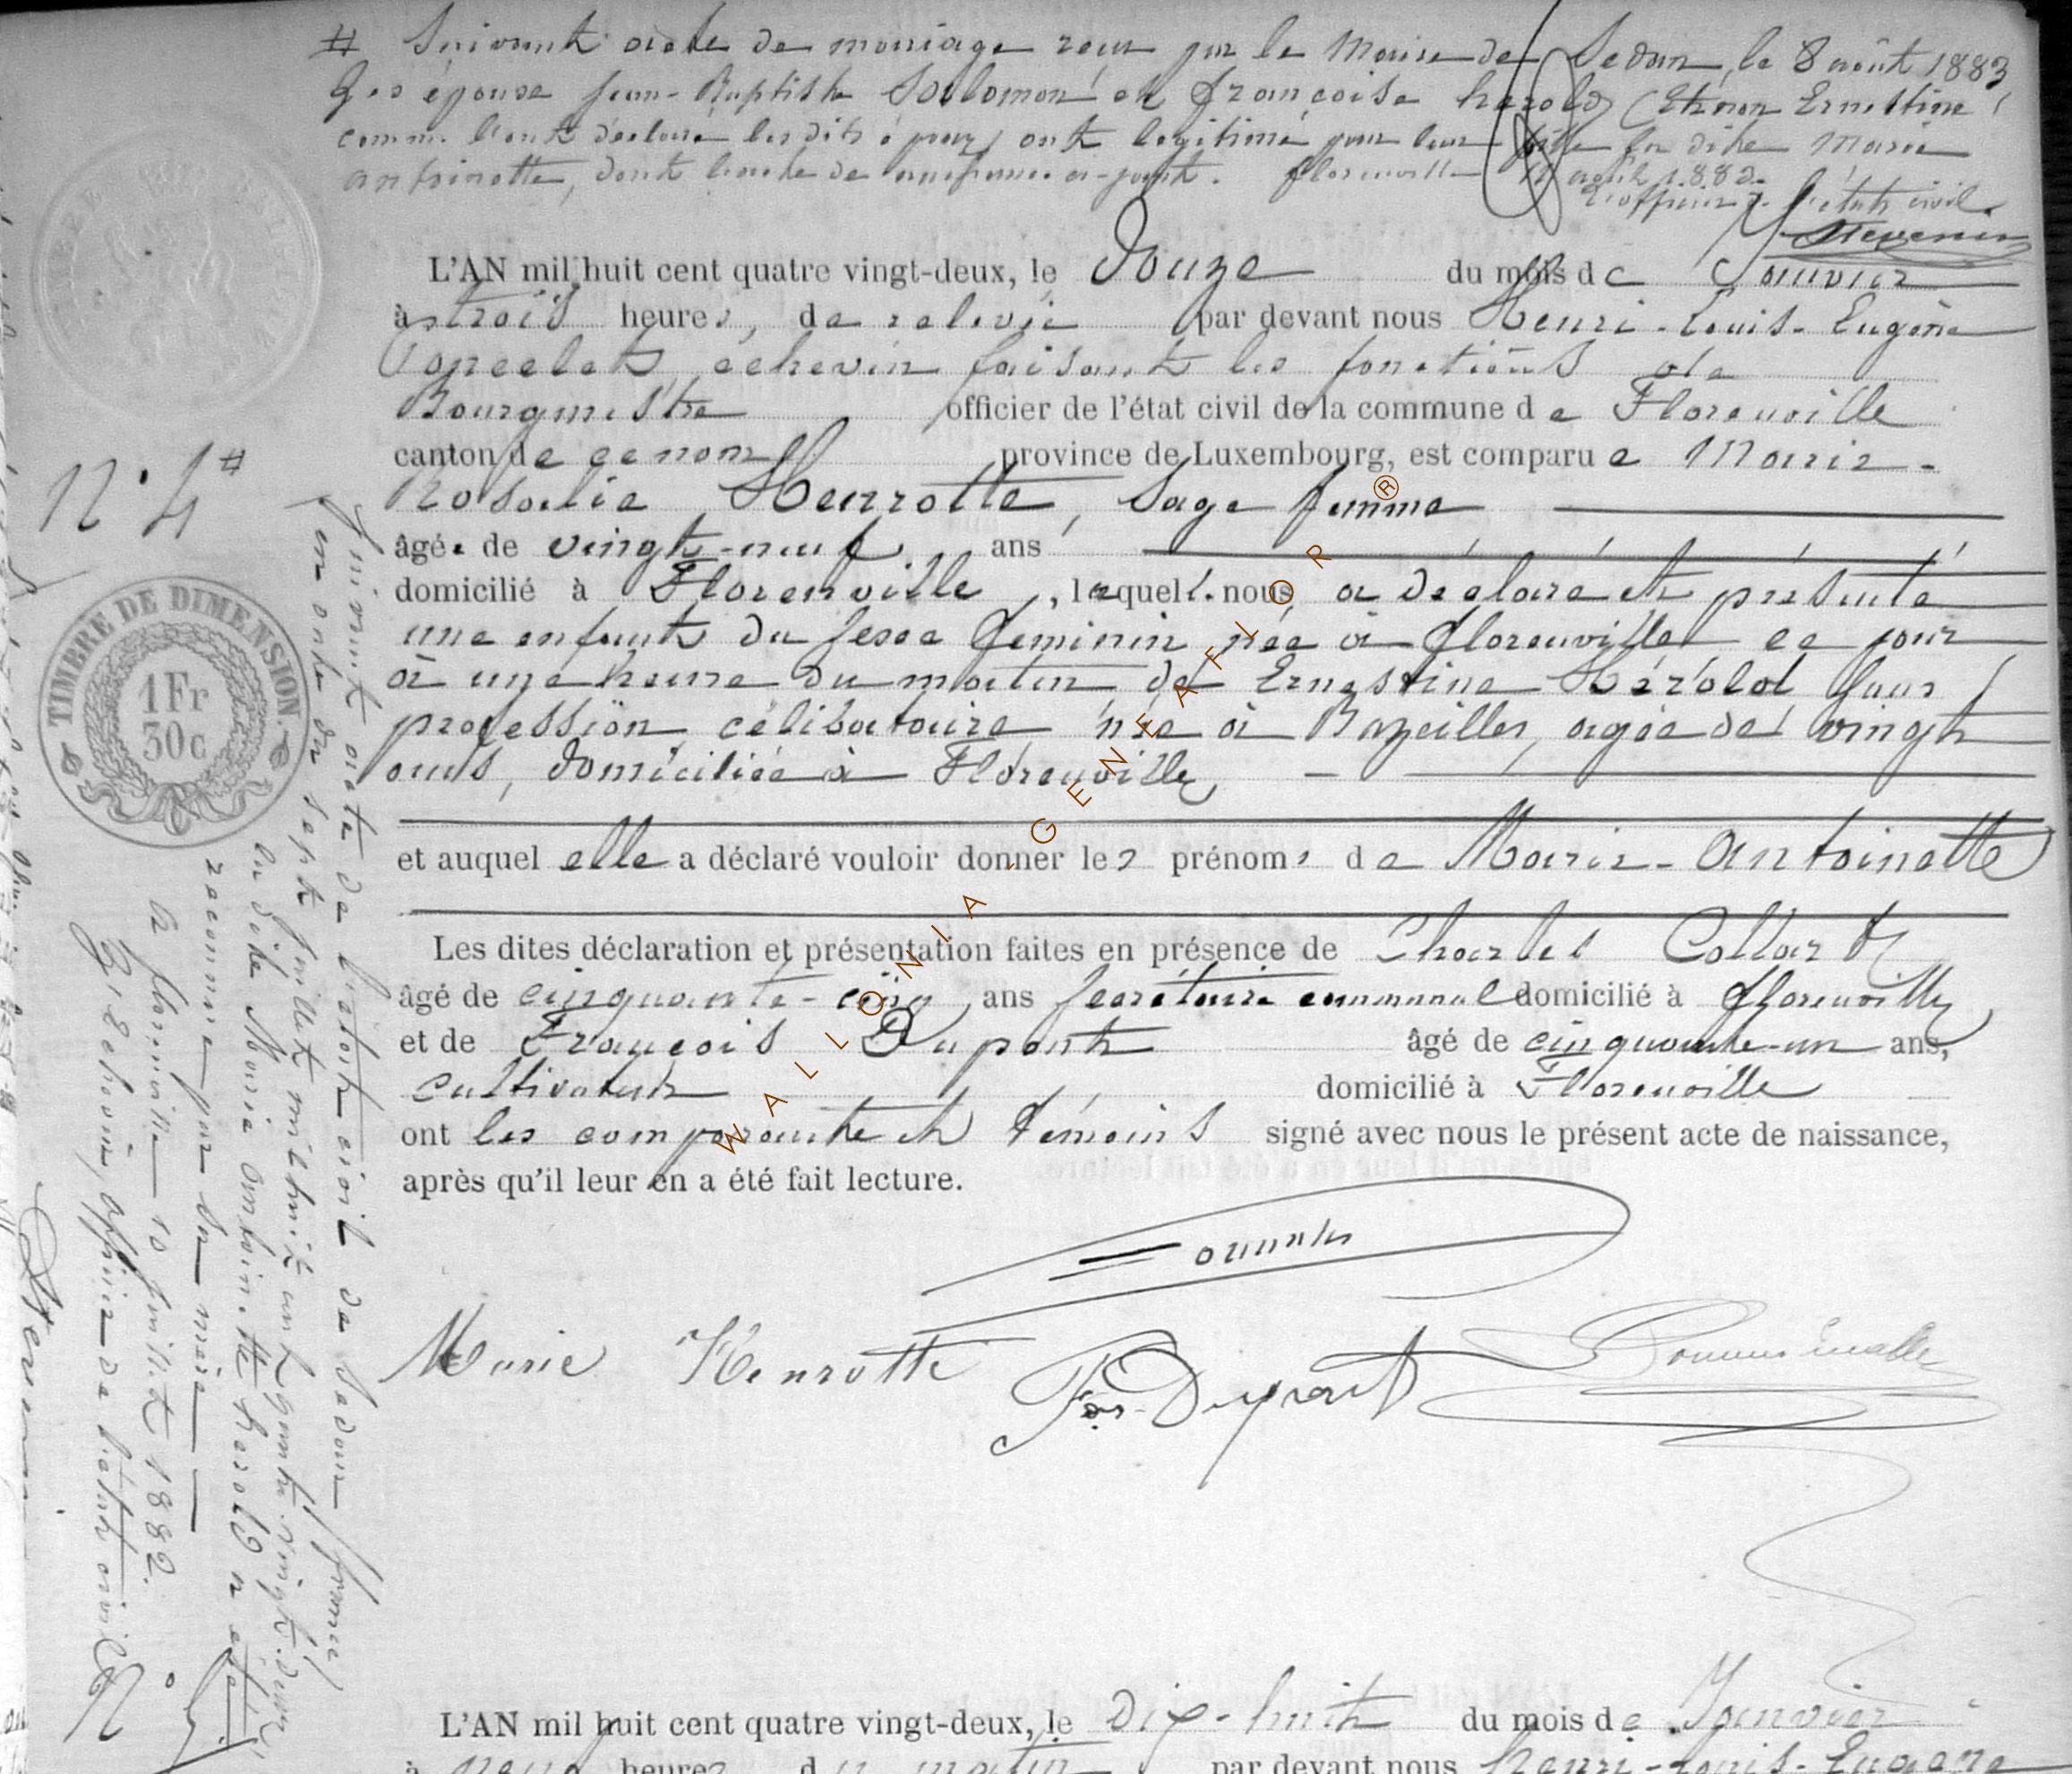 # Suivant acte de mariage reçu par le Maire de Sedan, le 8 août 1883
les épouse Jean-Baptiste Salomon et Françoise herold (Etienon Ernestine
comme l'ont déclaré les dits époux, ont legitimé pour leur fille la dite Marie
antoinette, dont l'acte de naissance ci-joint. florenville
L'officier de l'état civil.
L'AN mil huit cent quatre vingt-deux, le Douze du mois de Janvier
à trois heures, de relevée par devant nous Henri-Louis-Eugène
échevin faisant les fonctions de
Bourgmestre officier de l'état civil de la commune de Florenville
canton de ce nom province de Luxembourg, est comparue Marie-
Rosalie Henrotte, Sage femme
âgée de vingt-neuf ans
domicilié à Florenville, laquelle nous a déclaré et présenté
une enfant du sexe féminin née à florenville ce jour
à une heure du matin de Ernestine Hérold sans
profession célibataire née à Bazeilles, agée de vingt
ans, domiciliée à Florenville,
et auquel elle a déclaré vouloir donner les prénoms de Marie-Antoinette
Les dites déclaration et présentation faites en présence de Charles Collard
âgé de cinquante-cinq ans secrétaire communal domicilié à florenville
et de François Dupont âgé de cinquante-un ans,
cultivateur domicilié à Florenville
ont les comparante et témoins signé avec nous le présent acte de naissance,
après qu'il leur en a été fait lecture.
Marie Henrotte
Fois Dupont
N° 4 #
TIMBRE DE DIMENSION.
1Fr
30c
Suivant acte de l'état civil de Sedan (france)
en date du sept juillet mil huit cent quatre-vingt-deux
la dite Marie Antoinette herold a été
reconnue par sa mère
à florenville 10 juillet 1882.
L'Echevin, officier de l'état civil
L'AN mil huit cent quatre vingt-deux, le Dix-huit du mois de Janvier
à neuf heures du matin par devant nous henri-Louis-Eugene
N°
WALLONIA - GENEAFLOR ®